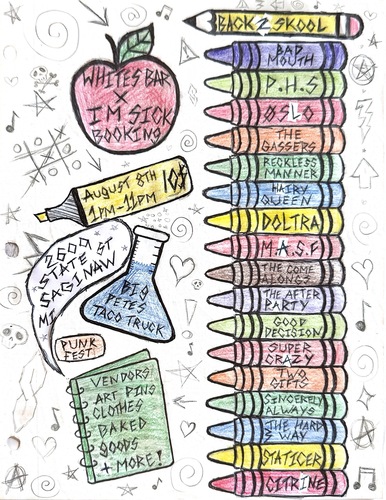 BACK 2 SKOOL
WHITES BAR
X
I'M SICK
BOOKING
AUGUST 8TH
1PM-11PM
10$
2609
STATE ST
SAGINAW
MI
BIG
PETES
TACO TRUCK
PUNK
FEST
VENDORS
ART PINS
CLOTHES
BAKED
GOODS
+ MORE!
BAD
MOUTH
P.H.S
OSLO
THE
GASSERS
RECKLESS
MANNER
HAIRY
QUEEN
DOLTRA
M.A.S.F
THE COME
ALONGS
THE AFTER
PARTY
GOOD
DECISION
SUPER
CRAZY
TWO
GIFTS
SINCERELY
ALWAYS
THE HARD
WAY
STATICER
CITRINE